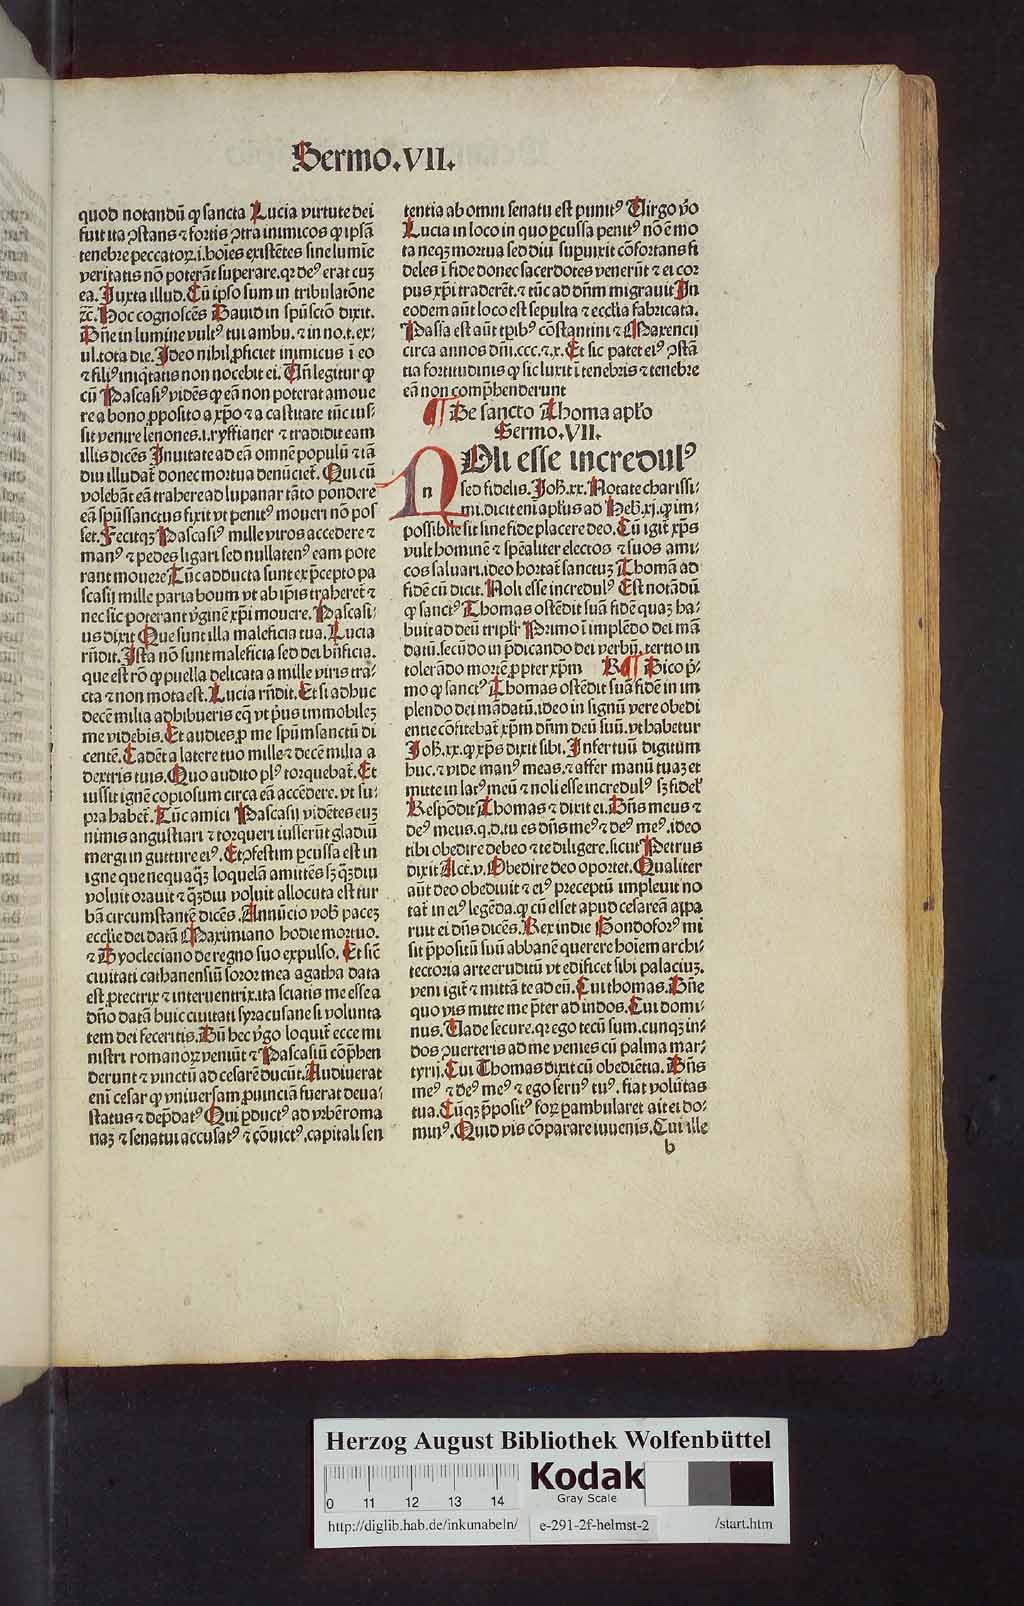 Sermo.VII.
quod notandū ꝙ sancta Lucia virtute dei
fuit ita ꝯstans ⁊ fortis ꝯtra inimicos ꝙ ipsā
tenebre peccatoꝝ.i.hoīes existētes sine lumīe
veritatis nō poterāt superare.qꝛ deꝰ erat cuꝫ
ea.Juxta illud.Cū ipso sum in tribulatōne
⁊c̄.Hoc cognoscēs Dauid in spūsctō dixit.
Dn̄e in lumine vultꝰ tui ambu.⁊ in no.t.ex⸗
ul.tota die.Ideo nihil ꝓficiet inimicus ī eo
⁊ filiꝰ iniq̄tatis non nocebit ei.Un̄ legitur ꝙ
cū Pascasiꝰ vidēs ꝙ eā non poterat amoue
re a bono ꝓposito a xp̄o ⁊ a castitate tūc ius⸗
sit venire lenones.i.ryffianer ⁊ tradidit eam
illis dicēs Inuitate ad eā omnē populū ⁊ tā
diu illudat̄ donec mortua denūciet̄.Qui cū
volebāt eā trahere ad lupanar tāto pondere
eā spūssanctus fixit vt penitꝰ moueri nō pos
set.Fecitqꝫ Pascasiꝰ mille viros accedere ⁊
manꝰ ⁊ pedes ligari sed nullatenꝰ eam pote
rant mouere Tūc adducta sunt ex p̄cepto pa
scasij mille paria boum vt ab ip̄is traheret̄ ⁊
nec sic poterant v̓ginē xp̄i mouere.Pascasi⸗
us dixit Que sunt illa maleficia tua.Lucia
rn̄dit.Ista nō sunt maleficia sed dei bn̄ficia.
que est rō ꝙ puella delicata a mille viris tra⸗
cta ⁊ non mota est.Lucia rn̄dit.Et si adhuc
decē milia adhibueris eq̄ vt p̓us immobileꝫ
me videbis.Et audies ꝑ me spūm sanctū di
centē.Cadēt a latere tuo mille ⁊ decē milia a
dextris tuis.Quo audito plꝰ torquebat̄.Et
iussit ignē copiosum circa eā accēdere.vt su⸗
pra habet̄.Tūc amici Pascasij vidētes euꝫ
nimis angustiari ⁊ torqueri iusserūt gladiū
mergi in gutture eiꝰ.Et ꝯfestim ꝑcussa est in
igne que nequaqꝫ loquelā amittēs sꝫ qꝫdiu
voluit orauit ⁊ qꝫdiu voluit allocuta est tur
bā circumstantē dicēs.Annūcio vob̓ paceꝫ
eccl̄ie dei datā Maximiano hodie mortuo.
⁊ Dyocleciano de regno suo expulso.Et sic̄
ciuitati cathanensiū soror mea agatha data
est ꝓtectrix ⁊ interuentrix.ita sciatis me esse a
dn̄o datā huic ciuitati syracusane si volunta
tem dei feceritis.Dū hec v̓go loquit̄ ecce mi
nistri romanoꝝ veniūt ⁊ Pascasiū cōp̄hen
derunt ⁊ vinctū ad cesarē ducūt.Audiuerat
eni cesar ꝙ vniuersam ꝓuinciā fuerat deua⸗
status ⁊ dep̄datꝰ Qui ꝑductꝰ ad vrbē roma
naꝫ ⁊ senatui accusatꝰ ⁊ cōuictꝰ.capitali sen
tentia ab omni senatu est punitꝰ Virgo v̓o
Lucia in loco in quo ꝑcussa penitꝰ nō ē mo
ta neqꝫ mortua sed diu superuixit cōfortans fi
deles ī fide donec sacerdotes venerūt ⁊ ei cor
pus xp̄i traderēt.⁊ tūc ad dn̄m migrauit In
eodem aūt loco est sepulta ⁊ eccl̄ia fabricata.
Passa est aūt tꝑibꝰ cōstantini ⁊ Maxencij
circa annos dn̄i.ccc.⁊.x.Et sic patet eiꝰ ꝯstā
tia fortitudinis ꝙ sic luxit ī tenebris ⁊ tenebre
eā non comp̄henderunt
¶ De sancto Thoma apl̓o
Sermo.VII.
NOli esse incredulꝰ
sed fidelis.Joh̓.xx.Notate charissi⸗
mi.dicit eni apl̓us ad Heb̓.xj.ꝙ im⸗
possibile sit sine fide placere deo.Cū igit̄ xp̄s
vult hominē ⁊ sp̄ealiter electos ⁊ suos ami⸗
cos saluari.ideo hortat̄ sanctuꝫ Thomā ad
fidē cū dicit.Noli esse incredulꝰ Est notādū
ꝙ sanctꝰ Thomas ostēdit suā fidē quaꝫ ha⸗
buit ad deū tripl̓r Primo ī implēdo dei mā
datū.secūdo in p̄dicando dei verbū.tertio in
tolerādo mortē ꝓpter xp̄m R ¶ Dico p̓⸗
mo ꝙ sanctꝰ Thomas ostēdit suā fidē in im
plendo dei mādatū.ideo in signū vere obedi
entie cōfitebat̄ xp̄m dn̄m deū suū.vt habetur
Joh̓.xx.ꝙ xp̄s dixit sibi.Infer tuū digitum
huc.⁊ vide manꝰ meas.⁊ affer manū tuaꝫ et
mitte in latꝰ meū ⁊ noli esse incredulꝰ sꝫ fidel̓
Respōdit Thomas ⁊ dixit ei.Dn̄s meus ⁊
deꝰ meus.q.d.tu es dn̄s meꝰ ⁊ deꝰ meꝰ.ideo
tibi obedire debeo ⁊ te diligere.sicut Petrus
dixit Act.v.Obedire deo oportet.Qualiter
aūt deo obediuit ⁊ eiꝰ preceptū impleuit no
tat̄ in eiꝰ legēda.ꝙ cū esset apud cesareā appa
ruit ei dn̄s dicēs.Rex indie Gondoforꝰ mi
sit p̄positū suū abbanē querere hoīem archi⸗
tectoria arte eruditū vt edificet sibi palaciuꝫ.
veni igit̄ ⁊ mittā te ad eū.Cui thomas.Dn̄e
quo vis mitte me p̄ter ad indos.Cui domi⸗
nus.Vade secure.qꝛ ego tecū sum.cunqꝫ in⸗
dos ꝯuerteris ad me venies cū palma mar⸗
tyrij.Cui Thomas dixit cū obediētia.Dn̄s
meꝰ ⁊ deꝰ meꝰ ⁊ ego seruꝰ tuꝰ.fiat volūtas
tua.Cūqꝫ p̄positꝰ foꝝ ꝑambularet ait ei do⸗
minꝰ.Quid vis cōparare iuuenis.Cui ille
b
Herzog August Bibliothek Wolfenbüttel
0 11 12 13 14
Kodak
Gray Scale
http://diglib.hab.de/inkunabeln/ e-291-2f-helmst-2 /start.htm